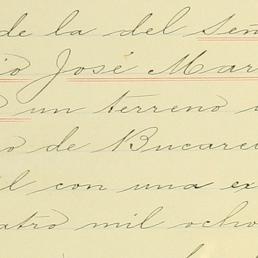 de la del Señ
io José Mar
o un terreno
o de Bucare
il con una ex
atro mil ocho